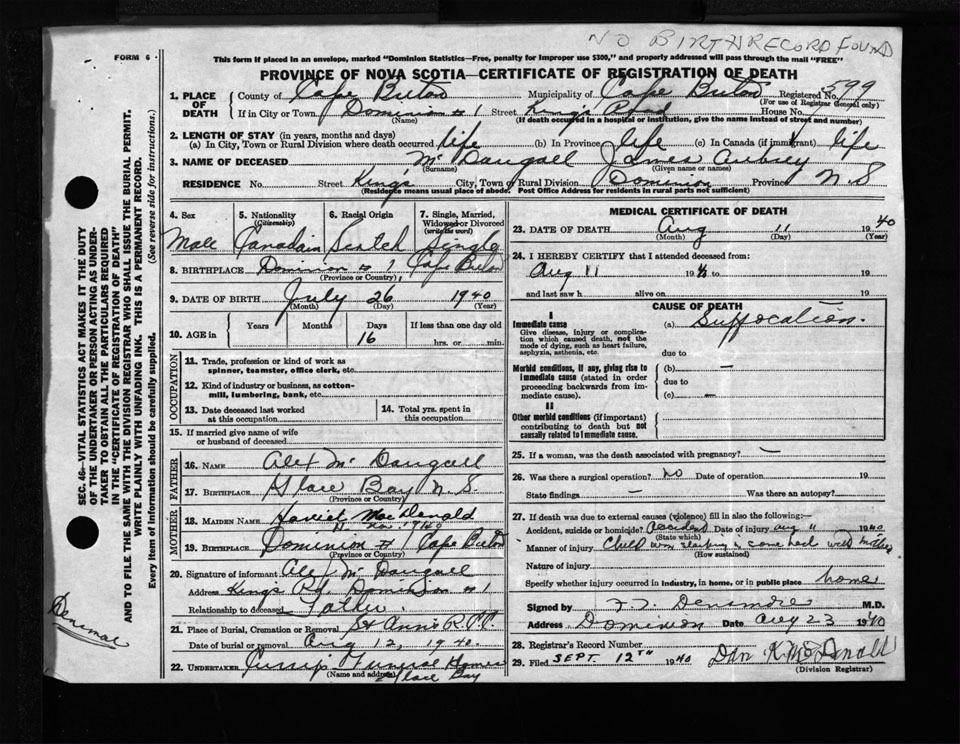 NO BIRTH RECORD FOUND
FORM 6
This form if placed in an envelope, marked "Dominion Statistics—Free, penalty for improper use $300," and properly addressed will pass through the mail "FREE"
PROVINCE OF NOVA SCOTIA—CERTIFICATE OF REGISTRATION OF DEATH
1. PLACE OF DEATH County of Cape Breton Municipality of Cape Breton Registered No. 599
(For use of Registrar General only)
If in City or Town Dominion #1 Street King's Road House No.
(Name) (If death occurred in a hospital or institution, give the name instead of street and number)
2. LENGTH OF STAY (in years, months and days)
(a) In City, Town or Rural Division where death occurred life (b) In Province life (c) In Canada (if immigrant) life
3. NAME OF DECEASED McDougall James Aubrey
(Surname) (Given name or names)
RESIDENCE No. Street King's City, Town or Rural Division Dominion Province N.S
(Residence means usual place of abode. Post Office Address for residents in rural parts not sufficient)
4. Sex 5. Nationality (Citizenship) 6. Racial Origin 7. Single, Married, Widowed or Divorced (write the word)
Male Canadain Scotch Single
8. BIRTHPLACE Dominion #1 Cape Breton
(Province or Country)
9. DATE OF BIRTH July 26 1940
(Month) (Day) (Year)
10. AGE in Years Months Days If less than one day old
16 hrs. or min.
OCCUPATION
11. Trade, profession or kind of work as spinner, teamster, office clerk, etc.
12. Kind of industry or business, as cotton-mill, lumbering, bank, etc.
13. Date deceased last worked at this occupation 14. Total yrs. spent in this occupation
15. If married give name of wife or husband of deceased
FATHER
16. NAME Alex McDougall
17. BIRTHPLACE Glace Bay N S
(Province or Country)
MOTHER
18. MAIDEN NAME Harriet MacDonald
19. BIRTHPLACE Dominion #1 Cape Breton
(Province or Country)
20. Signature of informant Alex McDougall
Address King's Rd. Dominion #1
Relationship to deceased Father.
21. Place of Burial, Cremation or Removal St Anns R.C.
Date of burial or removal Aug 12, 1940.
22. UNDERTAKER Funeral Home
(Name and address) Glace Bay
MEDICAL CERTIFICATE OF DEATH
23. DATE OF DEATH Aug 11 1940
(Month) (Day) (Year)
24. I HEREBY CERTIFY that I attended deceased from:
Aug 11 19 to 19
and last saw h alive on 19
CAUSE OF DEATH
I
Immediate cause (a) Suffocation.
Give disease, injury or complication which caused death, not the mode of dying, such as heart failure, asphyxia, asthenia, etc.
due to
Morbid conditions, if any, giving rise to immediate cause (stated in order proceeding backwards from immediate cause). (b) —
due to
(c) —
II
Other morbid conditions (if important) contributing to death but not causally related to immediate cause.
25. If a woman, was the death associated with pregnancy? —
26. Was there a surgical operation? NO Date of operation 19
State findings — Was there an autopsy?
27. If death was due to external causes (violence) fill in also the following:—
Accident, suicide or homicide? Accident Date of injury Aug 11 1940
(State which)
Manner of injury Child was sleeping in same bed with mother
(How sustained)
Nature of injury
Specify whether injury occurred in industry, in home, or in public place home
Signed by Densmore M.D.
Address Dominion Date Aug 23 1940
28. Registrar's Record Number
29. Filed SEPT. 12TH 1940 Dan K. McDonald
(Division Registrar)
SEC. 46—VITAL STATISTICS ACT MAKES IT THE DUTY
OF THE UNDERTAKER OR PERSON ACTING AS UNDER-
TAKER TO OBTAIN ALL THE PARTICULARS REQUIRED
IN THE "CERTIFICATE OF REGISTRATION OF DEATH"
AND TO FILE THE SAME WITH THE DIVISION REGISTRAR WHO SHALL ISSUE THE BURIAL PERMIT.
WRITE PLAINLY WITH UNFADING INK. THIS IS A PERMANENT RECORD.
Every item of information should be carefully supplied. (See reverse side for instructions.)